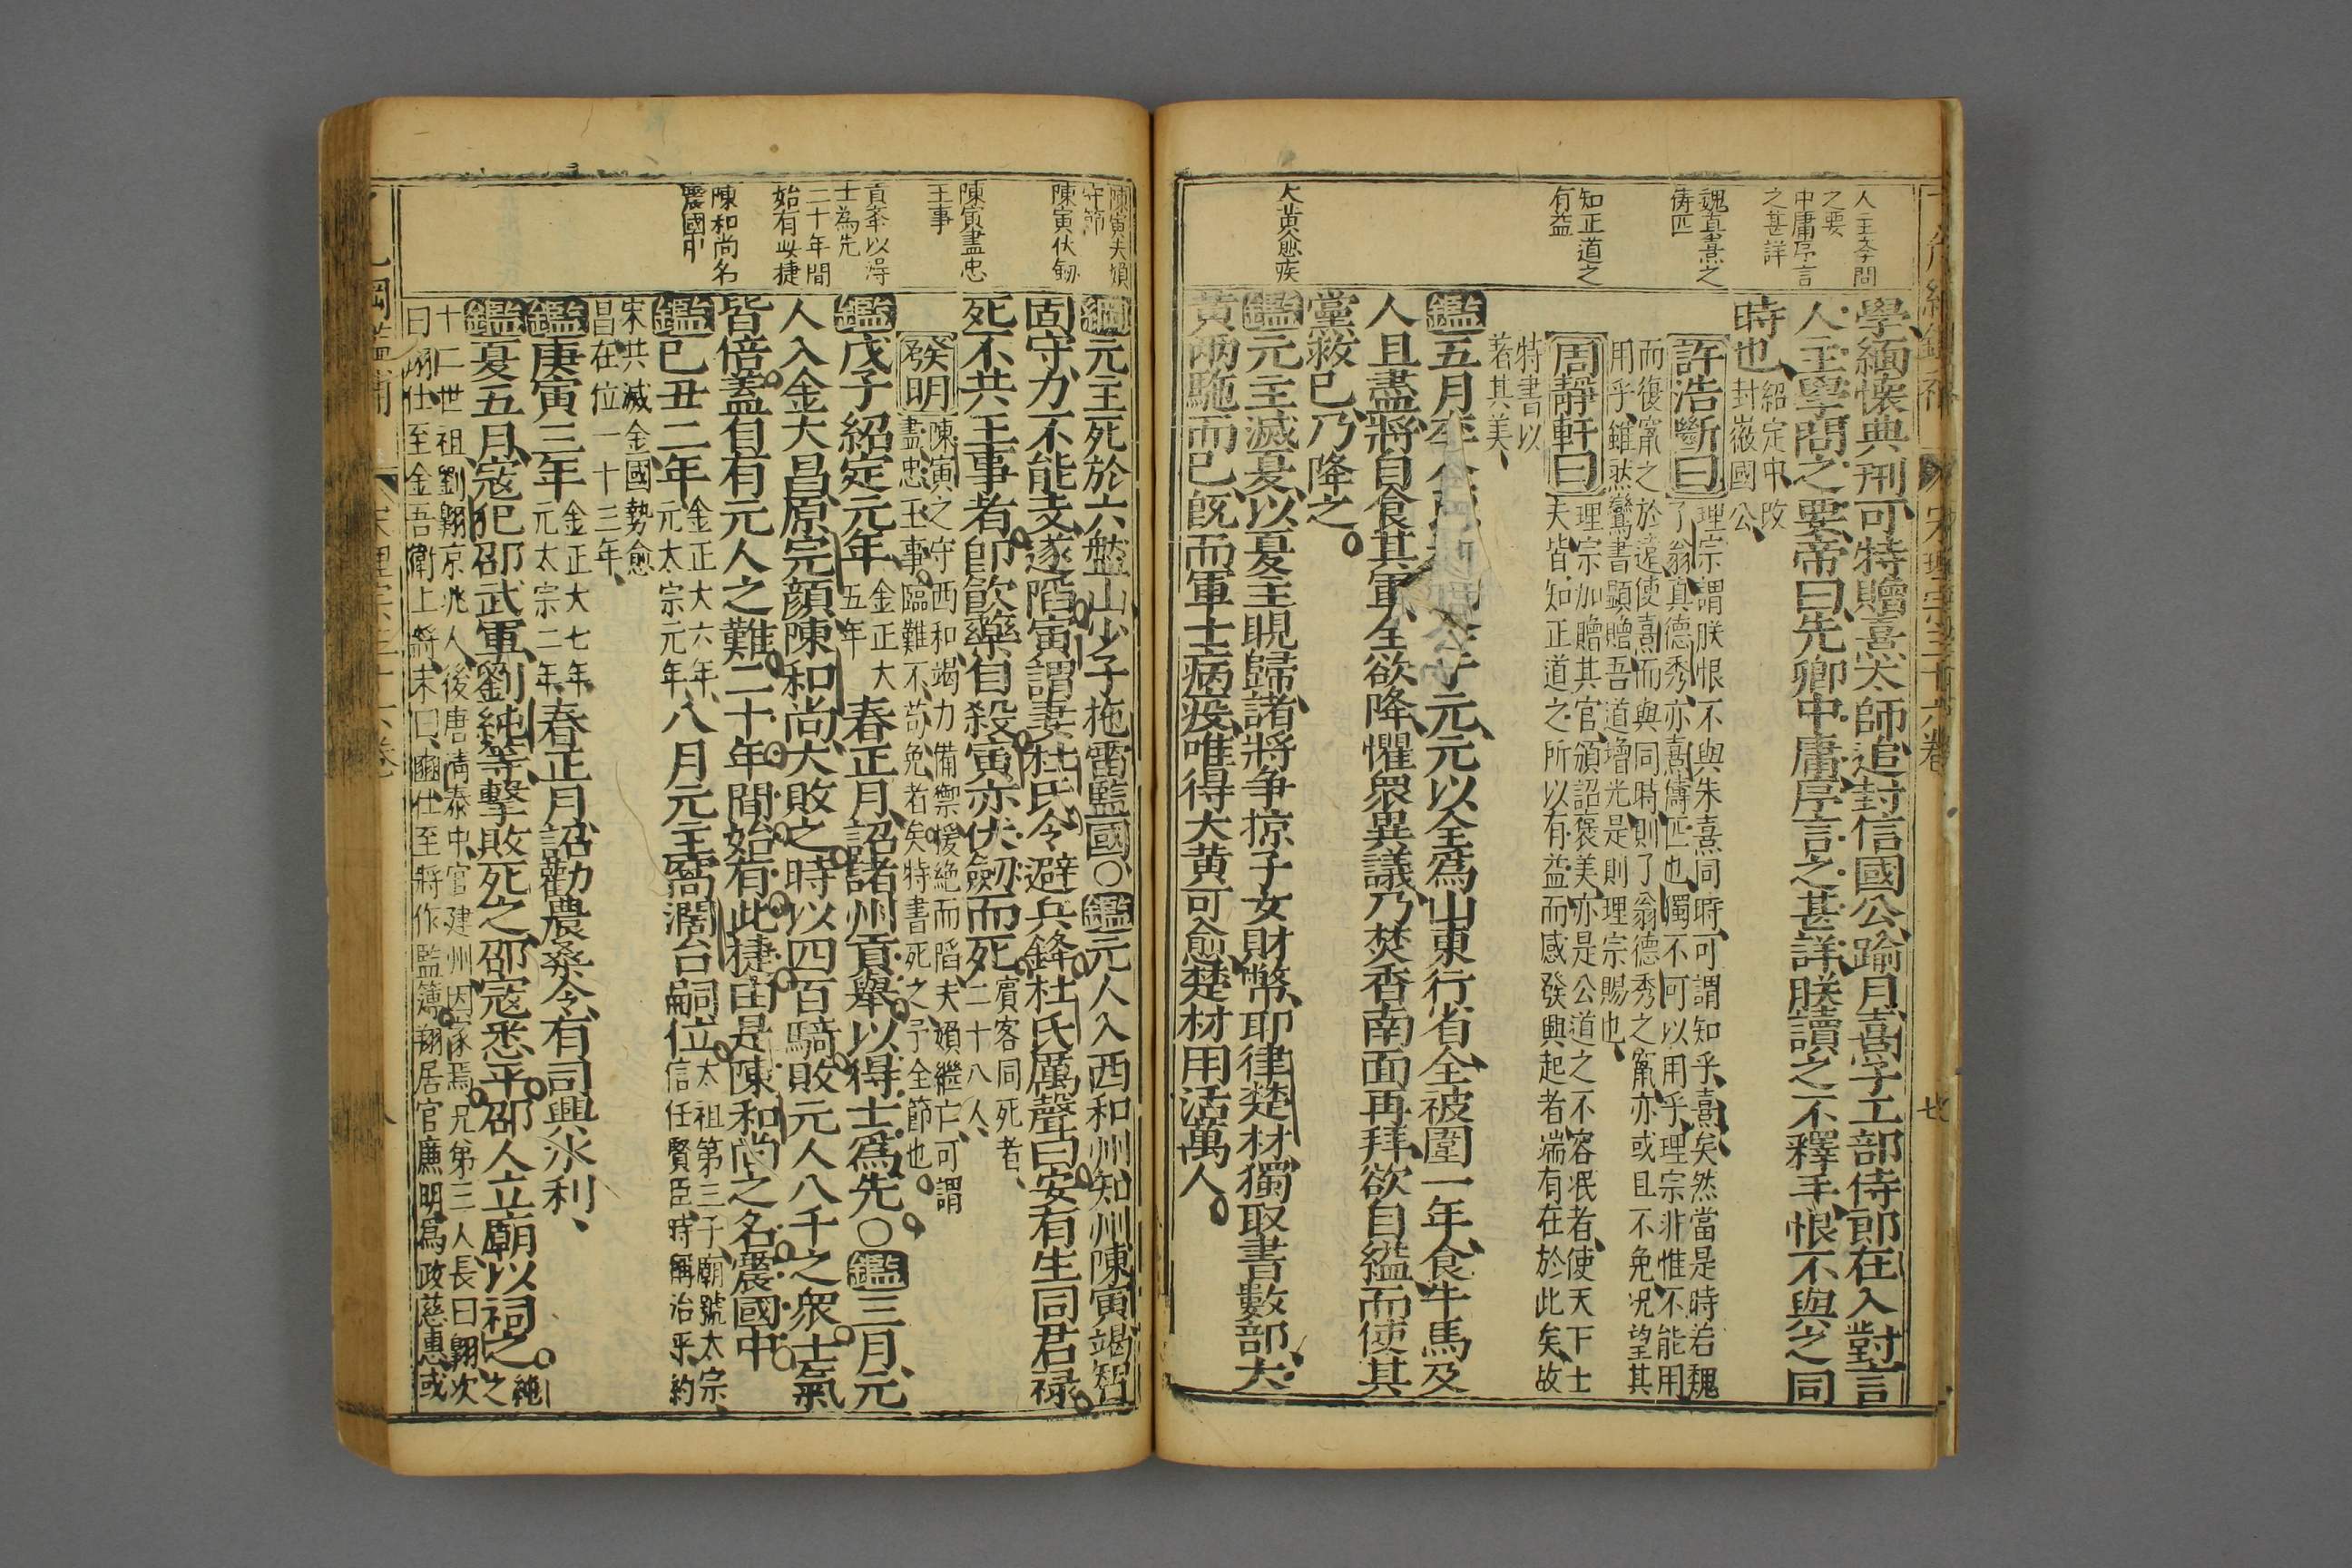 人主學問
之要
中庸序言
之甚詳
魏真熹之
儔匹
知正道之
有益
大黃愈疾
學緬懷典刑可特贈熹太師追封信國公踰月熹子工部侍郎在入對言
人主學問之要帝曰先卿中庸序言之甚詳朕讀之不釋手恨不與之同
時也
紹定中改
封徽國公
許浩斷曰
理宗謂朕恨不與朱熹同時可謂知乎熹矣然當是時若魏
了翁真德秀亦熹儔匹也獨不可以用乎理宗非惟不能用
而復竄之於遠使熹而與同時則了翁德秀之竄亦或且不免况望其
用乎雖然鸞書顯贈吾道增光是則理宗賜也
周靜軒曰
理宗加贈其官頒詔褒美亦是公道之不容泯者使天下士
夫皆知正道之所以有益而感發興起者端有在於此矣故
特書以
著其美
鑑五月李全元元以全爲山東行省全被圍一年食牛馬及
人且盡將自食其軍全欲降懼衆異議乃焚香南面再拜欲自縊而使其
黨救已乃降之
鑑元主滅夏以夏主睍歸諸將争掠子女財幣耶律楚材獨取書數部大
黃兩駞而已旣而軍士病疫唯得大黃可愈楚材用活萬人
陳寅夫婦
守節
陳寅伏劒
陳寅盡忠
王事
貢舉以得
士為先
二十年間
始有此捷
陳和尚名
震國中
綱元主死於六盤山少子拖雷監國○鑑元人入西和州知州陳寅竭智
固守力不能支遂陷寅謂妻杜氏令避兵鋒杜氏厲聲曰安有生同君祿
死不共王事者卽飮藥自殺寅亦伏劒而死
賓客同死者
二十八人
發明
陳寅之守西和竭力備禦援絶而陷夫婦繼亡可謂
盡忠王事臨難不苟免者矣特書死之予全節也
鑑戊子紹定元年
金正大
五年
春正月詔諸州貢舉以得士爲先○鑑三月元
人入金大昌原完顏陳和尚大敗之時以四百騎敗元人八千之衆士氣
皆倍蓋自有元人之難二十年間始有此捷由是陳和尚之名震國中
鑑己丑二年
金正大六年
元太宗元年
八月元主窩濶台嗣位
太祖第三子廟號太宗
信任賢臣時稱治平約
宋共滅金國勢愈
昌在位一十三年
鑑庚寅三年
金正大七年
元太宗二年
春正月詔勸農桑令有司興水利
鑑夏五月寇犯邵武軍劉純等擊敗死之邵寇悉平邵人立廟以祠之
純
之
十二世祖劉翺京兆人後唐清泰中官建州因家焉兄弟三人長曰翺次
曰翊仕至金吾衛上將末曰豳仕至將作監簿翔居官廉明爲政慈惠或